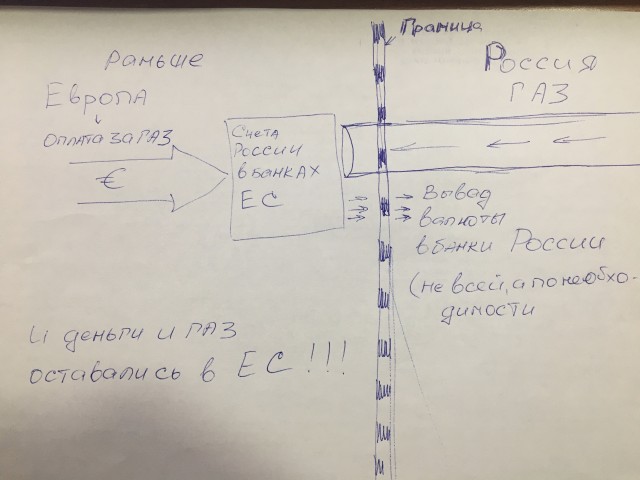 Раньше
Европа
оплата за газ
€
Счета
России
в банках
ЕС
Граница
Россия
ГАЗ
Вывад
валюты
в банки России
(не всей, а по необхо-
димости
и деньги и газ
оставались в ЕС!!!